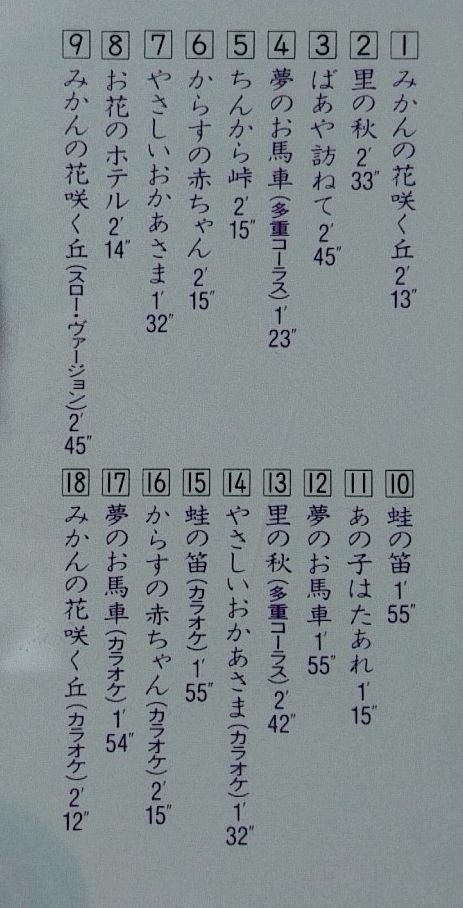 1 みかんの花咲く丘 2′13″
2 里の秋 2′33″
3 ばあや訪ねて 2′45″
4 夢のお馬車(多重コーラス) 1′23″
5 ちんから峠 2′15″
6 からすの赤ちゃん 2′15″
7 やさしいおかあさま 1′32″
8 お花のホテル 2′14″
9 みかんの花咲く丘(スロー・ヴァージョン) 2′45″
10 蛙の笛 1′55″
11 あの子はたあれ 1′15″
12 夢のお馬車 1′55″
13 里の秋(多重コーラス) 2′42″
14 やさしいおかあさま(カラオケ) 1′32″
15 蛙の笛(カラオケ) 1′55″
16 からすの赤ちゃん(カラオケ) 2′15″
17 夢のお馬車(カラオケ) 1′54″
18 みかんの花咲く丘(カラオケ) 2′12″